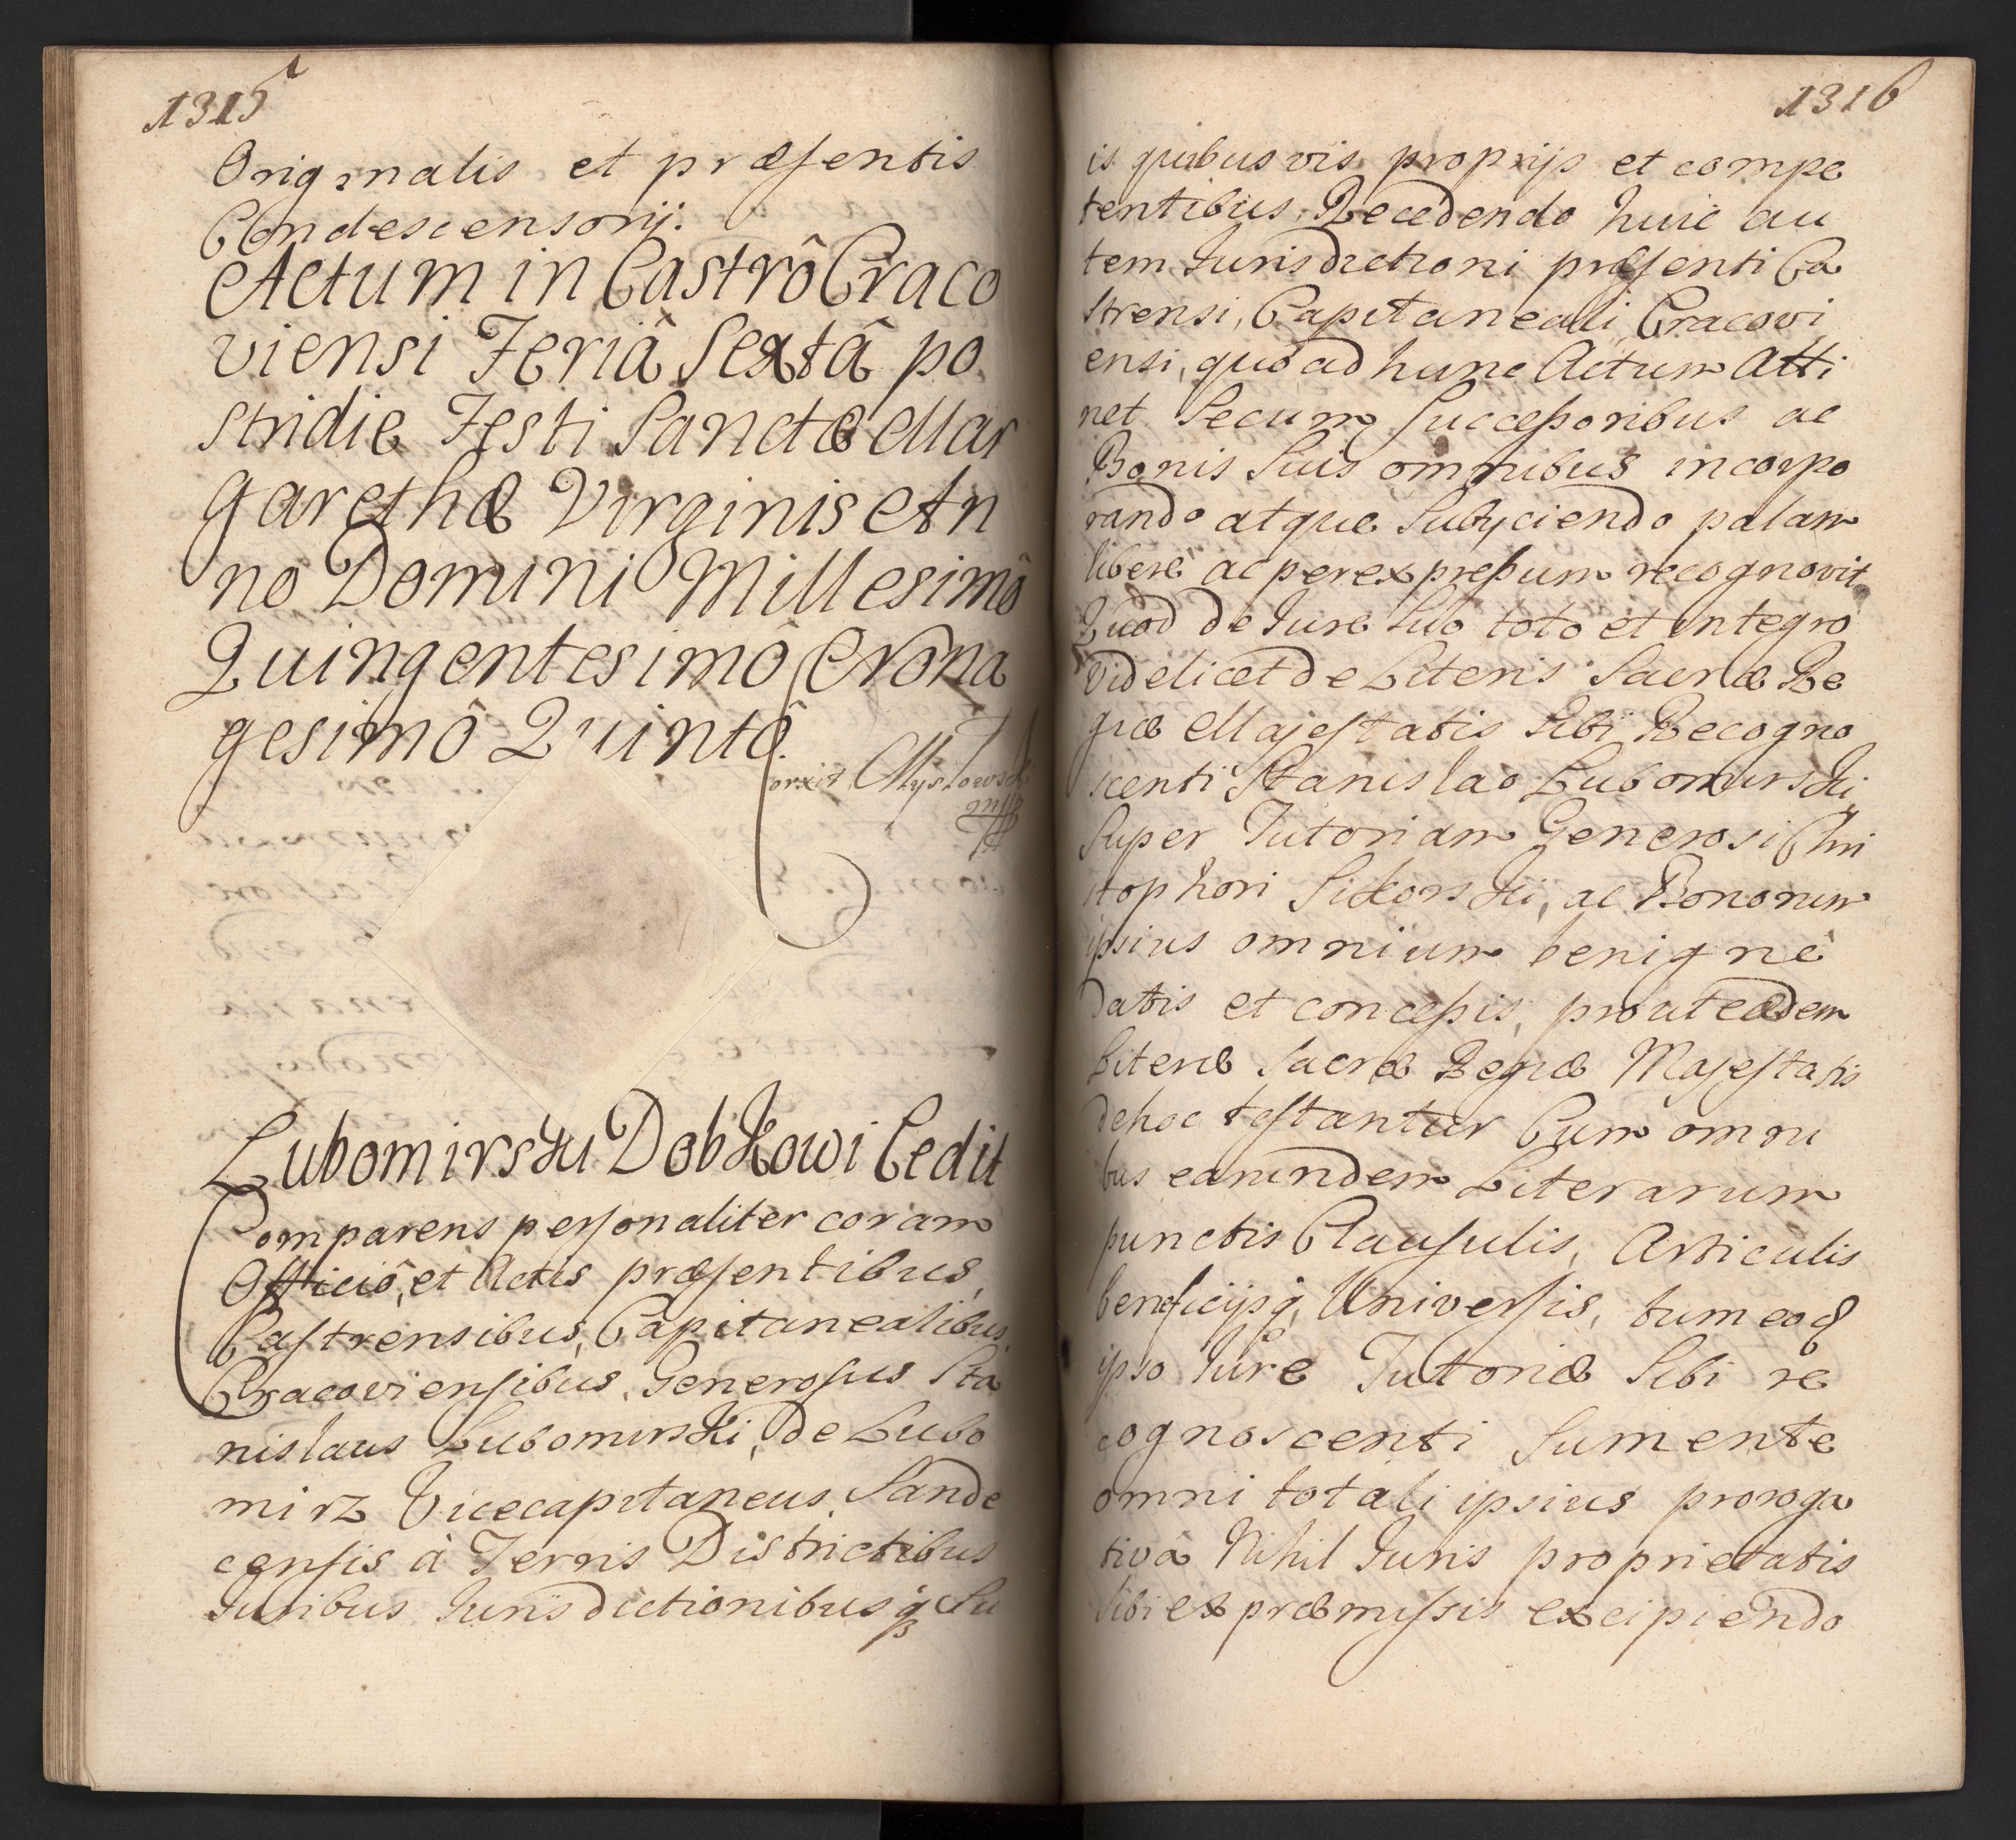 1315
Originalis et præsentis
Condescensorij.
Actum in Castrô Craco
viensi Feriâ Sextâ po
stridie Festi Sanctæ Mar
garethæ Virginis An
no Domini Millesimô
Quingentesimô Nona
gesimô Quintô.
Lubomirski Dobkowi Cedit
Comparens personaliter coram
Officiô, et Actis præsentibus,
Castrensibus, Capitanealibus
Cracoviensibus, Generosus Sta
nislaus Lubomirski, de Lubo
mirz Vicecapitaneus Sande
censis à Terris Districtibus
Juribus Jurisdictionibusq Su
1316
is quibusvis proprijs et compe
tentibus Recedendo huic au
tem Jurisdictioni præsenti Ca
strensi, Capitaneali Cracovi
ensi, quo ad hunc Actum Atti
net Secum Successoribus ac
Bonis Suis omnibus incorpo
rando atque Subijciendo palam
liberè ac per expressum recognovit
Quod de Jure Suo toto et integro
videlicet de Literis Sacræ Re
giæ Majestatis Sibi Recogno
scenti Stanislao Lubomirski
Super Tutoriam Generosi Chri
stophori Sikorski, ac Bonorum
ipsius omnium benignè
datis et concessis, prout eædem
Literæ Sacræ Regiæ Majestatis
de hoc testantur Cum omni
bus earundem Literarum
punctis Clausulis, Articulis
beneficijsq Universis, tum eoq
ipso Jure Tutoriæ Sibi re
cognoscenti Sumente
omni totali ipsius proroga
tivâ Nihil Juris proprietatis
Sibi ex præmissis excipiendo